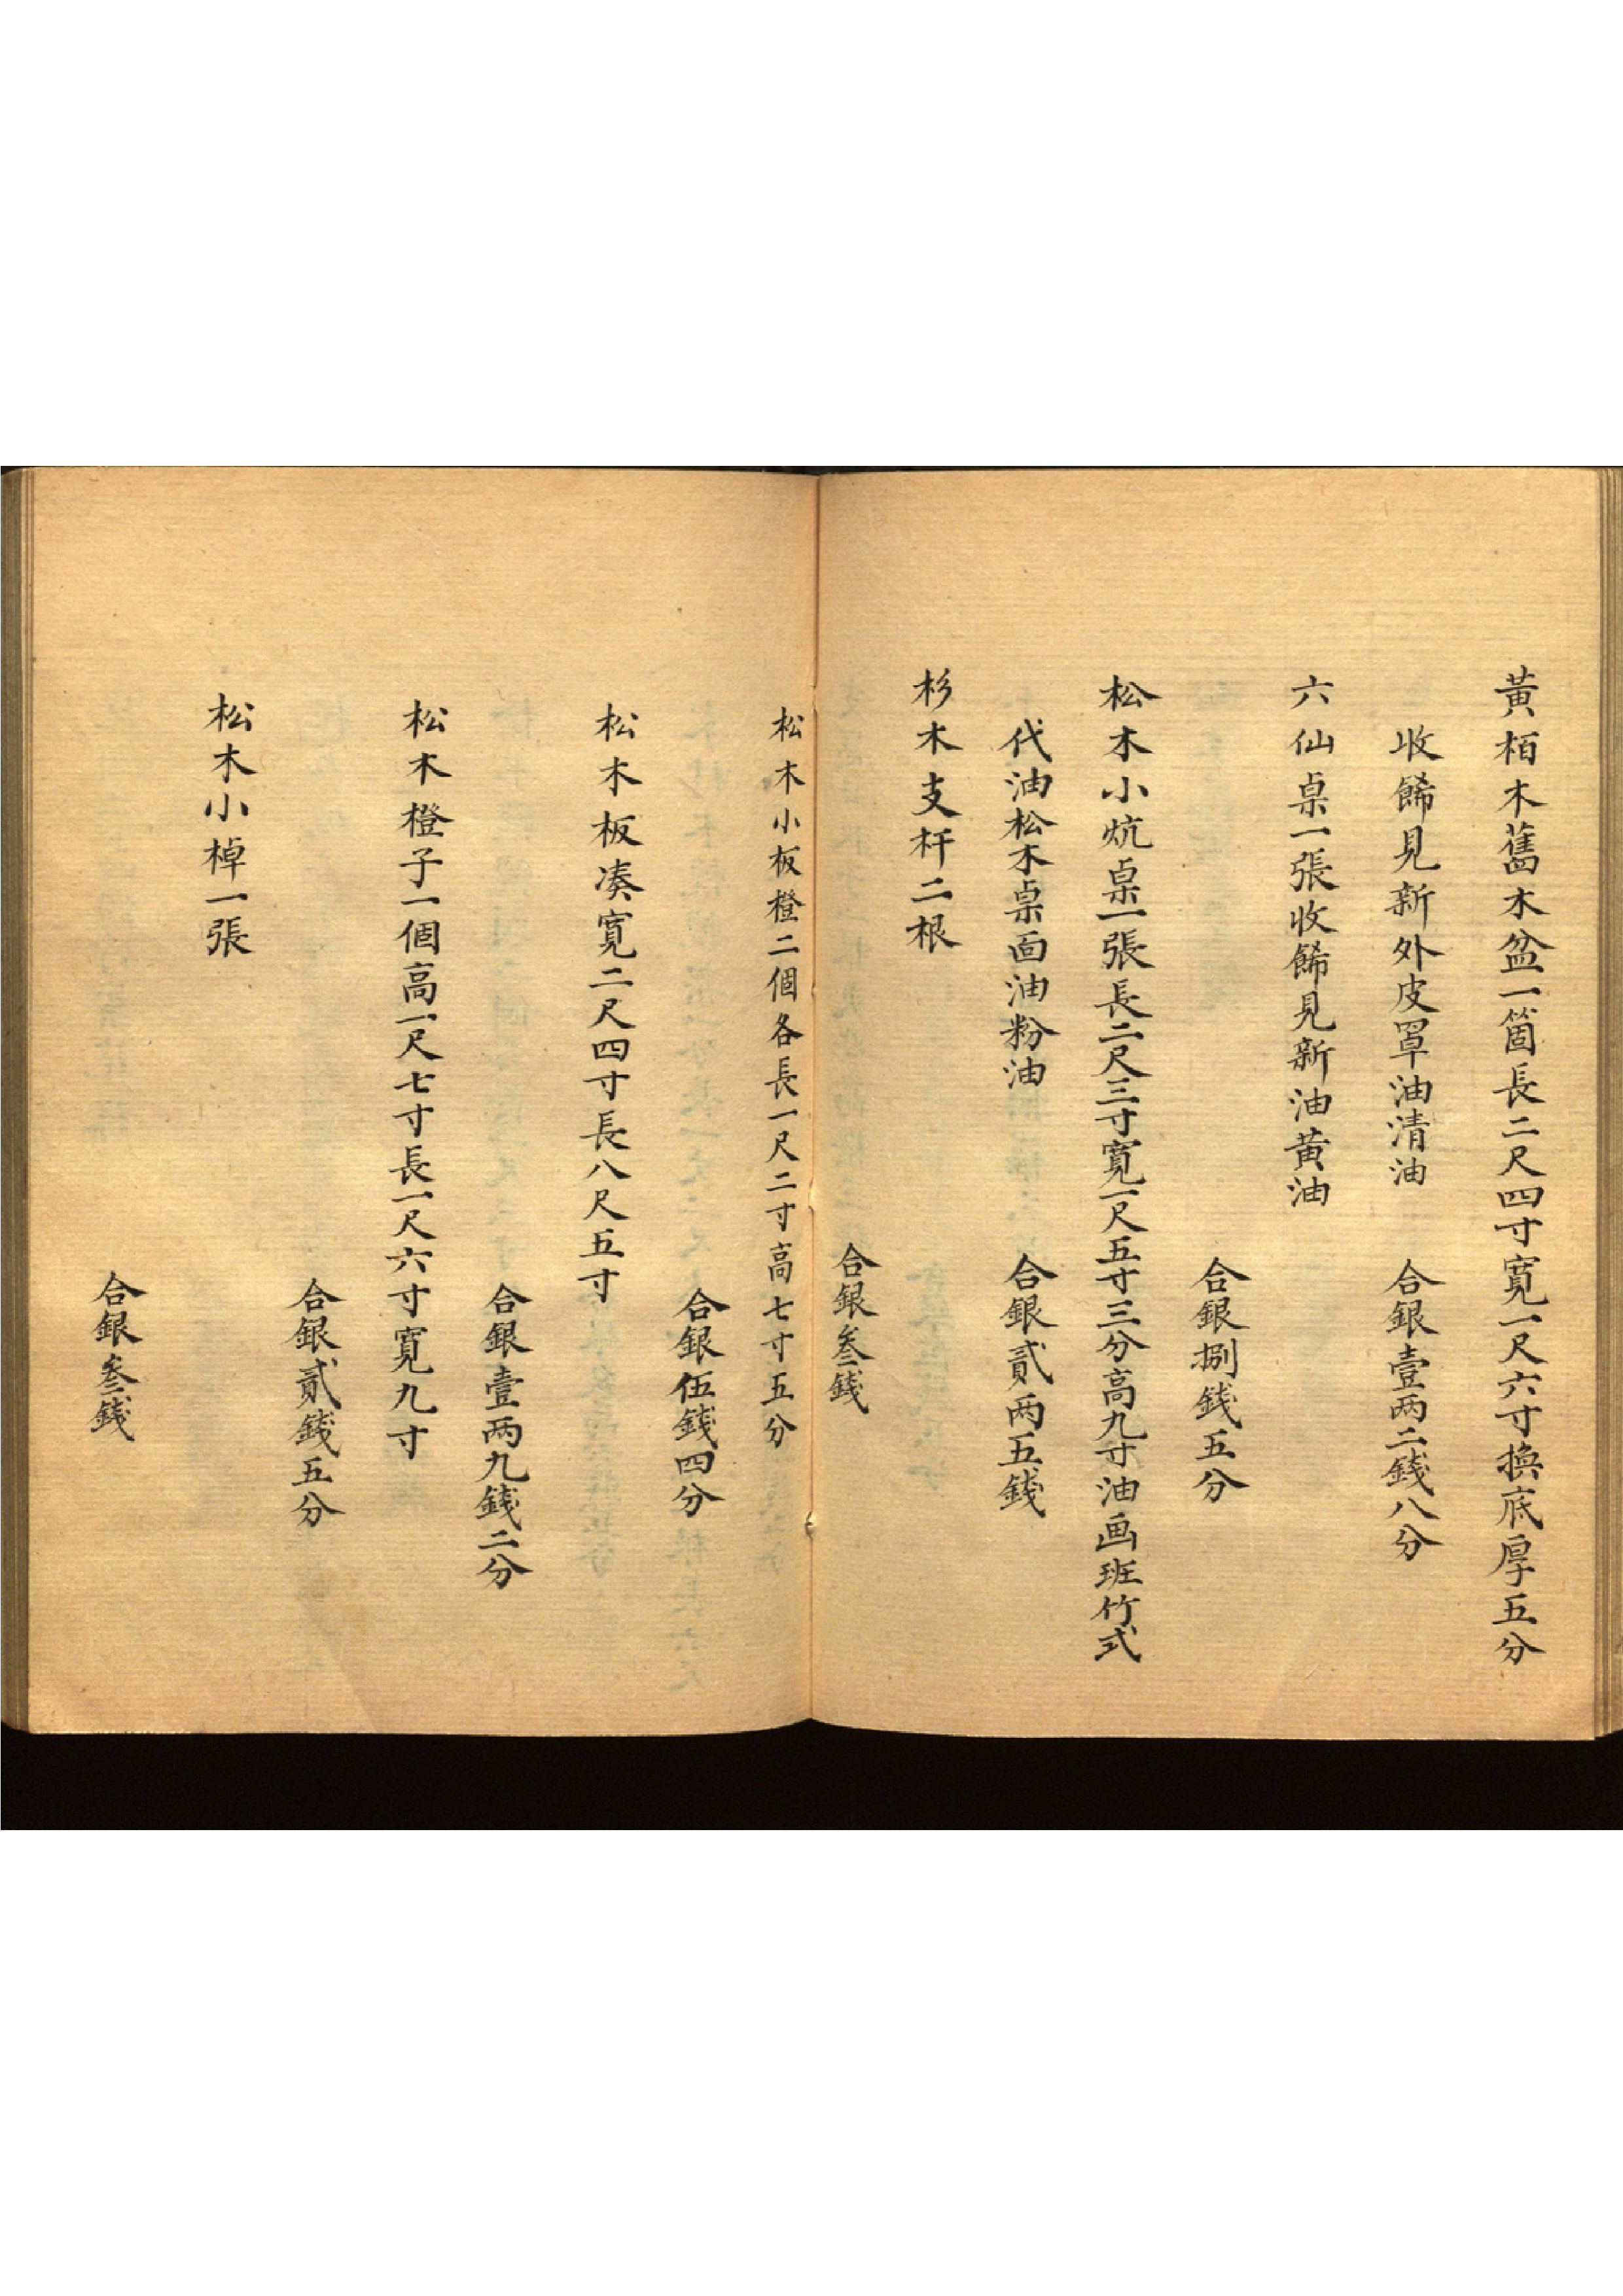 黃栢木舊木盆一箇長二尺四寸寛一尺六寸換底厚五分
收餙見新外皮罩油清油
合銀壹两二錢八分
六仙桌一張收餙見新油黄油
合銀捌錢五分
松木小炕桌一張長二尺三寸寛一尺五寸三分高九寸油画班竹式
代油松木桌面油粉油
合銀貳两五錢
杉木支杆二根
合銀叁錢
松木小板橙二個各長一尺二寸高七寸五分
合銀伍錢四分
松木板凑寛二尺四寸長八尺五寸
合銀壹两九錢二分
松木橙子一個高一尺七寸長一尺六寸寛九寸
合銀貳錢五分
松木小棹一張
合銀叁錢